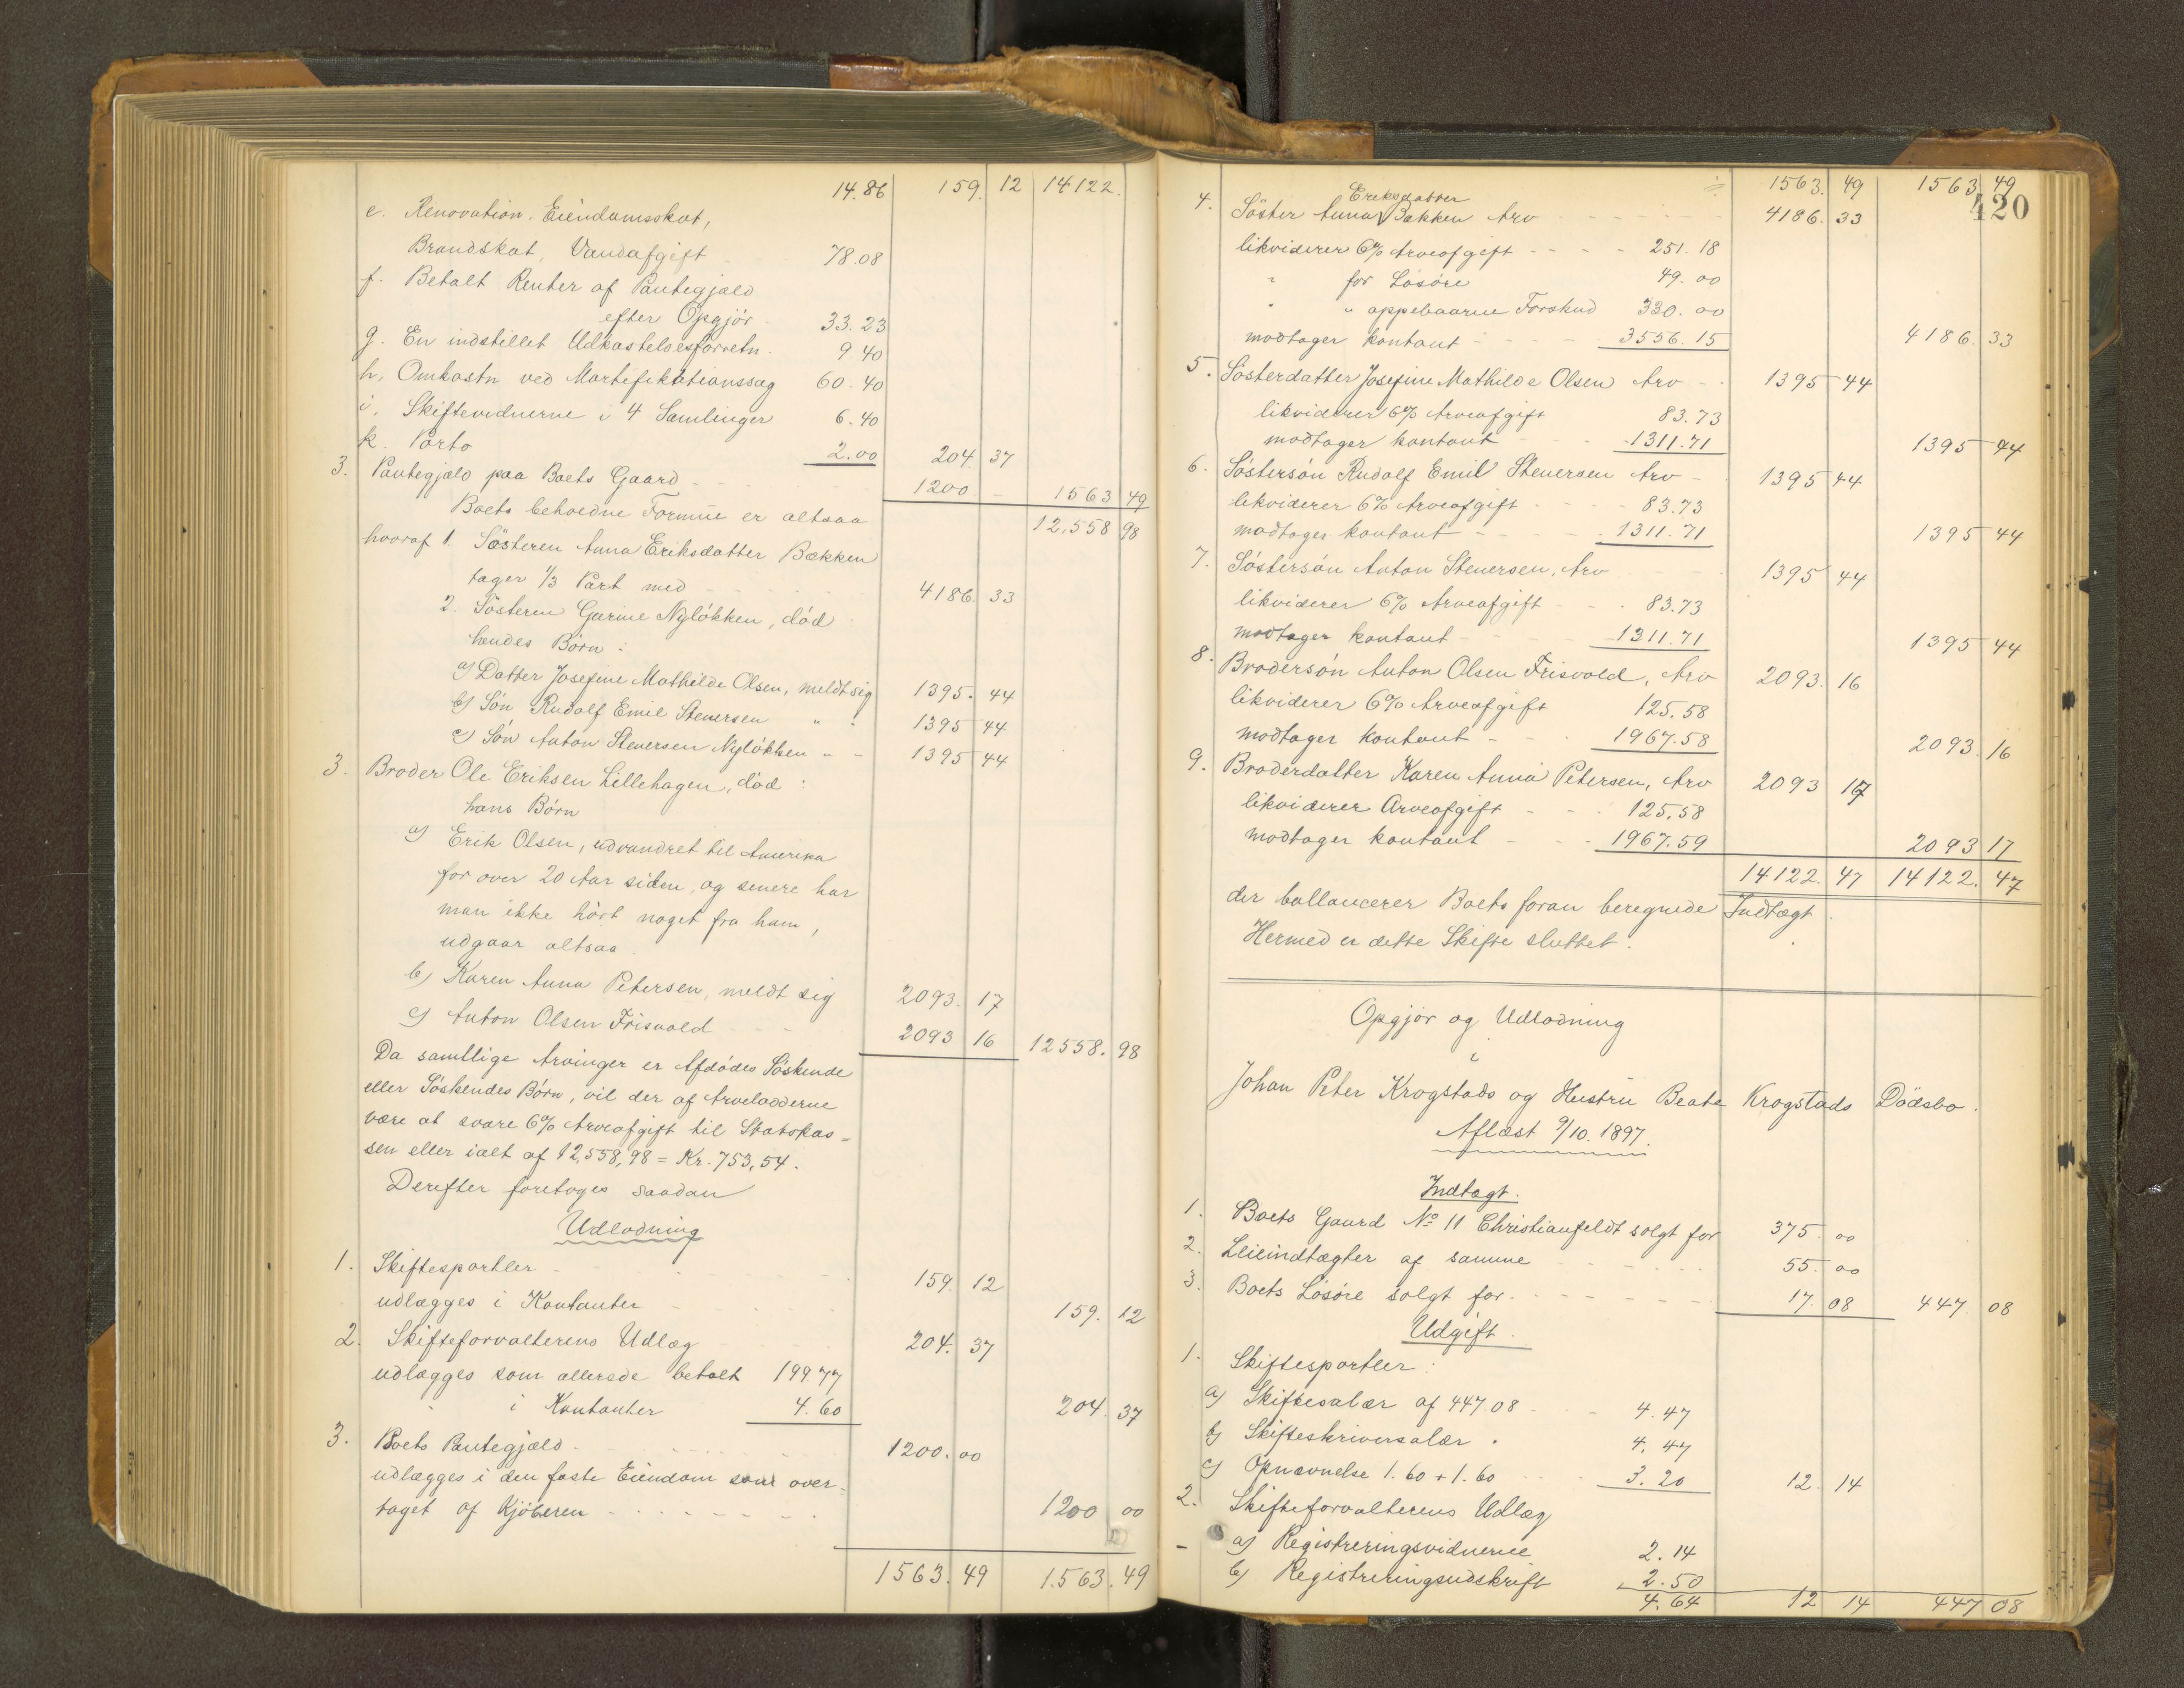 14.86 159. 12 14122.
e. Renovation. Eiendomsskat,
Brandskat, Vandafgift 78.08
f. Betalt Renter af Pantegjæld
efter Opgjör 33.23
g. En indstillet Udkastelsesforretn. 9 40
h, Omkostn ved Mortifikationssag 60.40
i. Skiftevidnerne i 4 Samlinger 6.40
k. Porto 2.00 204 37
3. Pantegjæld paa Boets Gaard 1200 - 1563 49
Boets beholdne Formue er altsaa 12.558 98
hvoraf 1. Søsteren Anna Eriksdatter Bækken
tager 1/3 Part med 4186. 33
2. Søsteren Gurine Nyløkken, död
hendes Börn:
a) Datter Josefine Mathilde Olsen, meldt sig 1395. 44
b) Sön Rudolf Emil Stenersen " " 1395 44
c) Sön Anton Stenersen Nyløkken - - 1395 44
3. Broder Ole Eriksen Lillehagen, död:
hans Börn
a) Erik Olsen, udvandret til Amerika
for over 20 Aar siden, og senere har
man ikke hört noget fra ham,
udgaar altsaa
b) Karen Anna Petersen, meldt sig 2093. 17
c) Anton Olsen Frisvold 2093 16 12558. 98
Da samtlige Arvinger er Afdödes Söskende
eller Söskendes Börn, vil der af Arvelodderne
være at svare 6% Arveafgift til Statskas=
sen eller ialt af 12,558,98 = Kr. 753,54.
Derefter foretoges saadan
Udlodning
1. Skiftesportler 159. 12
udlægges i Kontanter 159. 12
2. Skifteforvalterens Udlæg 204. 37
udlægges som allerede betalt 199.77
" i Kontanter 4.60 204. 37
3. Boets Pantegjæld 1200. 00
udlægges i den faste Eiendom som over-
taget af Kjöberen 1200 00
1563. 49 1.563. 49
1563. 49 1563 49
420
Eriksdatter
4. Söster Anna Bækken Arv 4186. 33
likviderer 6% Arveafgift 251. 18
" for Lösöre 49. 00
" " oppebaarne Forskud 330. 00
modtager kontant 3556. 15 4186. 33
5. Sösterdatter Josefine Mathilde Olsen Arv 1395 44
likviderer 6% Arveafgift 83.73
modtager kontant 1311.71 1395 44
6. Söstersön Rudolf Emil Stenersen Arv 1395 44
likviderer 6% Arveafgift 83.73
modtager kontant 1311.71 1395 44
7. Söstersön Anton Stenersen, Arv 1395 44
likviderer 6% Arveafgift 83.73
modtager kontant 1311.71 1395 44
8. Brodersön Anton Olsen Frisvold, Arv 2093. 16
likviderer 6% Arveafgift 125.58
modtager kontant 1967.58 2093. 16
9. Broderdatter Karen Anna Petersen, Arv 2093 17
likviderer Arveafgift 125.58
modtager kontant 1967.59 2093 17
14122. 47 14122. 47
der ballancerer Boets foran beregnede Indtægt.
Hermed er dette Skifte sluttet.
Opgjör og Udlodning
i
Johan Peter Krogstads og Hustru Beate Krogstads Dödsbo.
Aflæst 9/10. 1897.
Indtægt.
1. Boets Gaard No 11 Christianfeldt solgt for 375. 00
2. Leieindtægter af samme 55. 00
3. Boets Lösöre solgt for 17. 08 447. 08
Udgift.
1. Skiftesportler:
a) Skiftesalær af 447.08 4.47
b) Skifteskriversalær " 4.47
c) Opnævnelse 1.60 + 1.60 3.20 12. 14
2. Skifteforvalterens Udlæg
a) Registreringsvidnerne 2.14
b) Registreringsudskrift 2.50
4.64 12 14 447 08